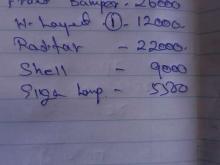 Front Bamper - 26000
W. Layed ① - 12000
Raditar - 22000
Shell - 9000
Sigа Lamp - 5500